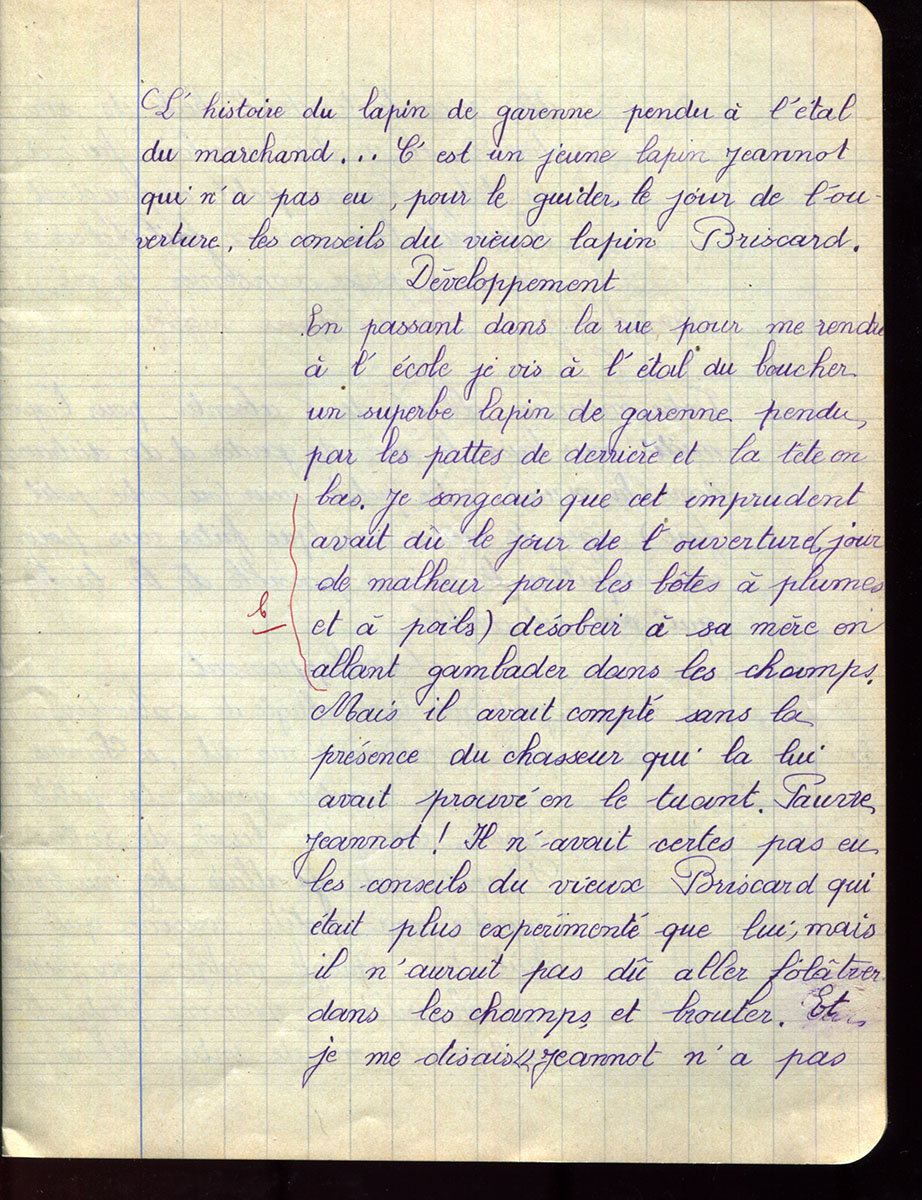 L'histoire du lapin de garenne pendu à l'étal
du marchand... C'est un jeune lapin Jeannot
qui n'a pas eu, pour le guider, le jour de l'ou-
verture, les conseils du vieux lapin Briscard.
Développement
En passant dans la rue pour me rendre
à l'école je vis à l'étal du boucher
un superbe lapin de garenne pendu
par les pattes de derrière et la tête en
bas. Je songeais que cet imprudent
avait dû le jour de l'ouverture (jour
de malheur pour les bêtes à plumes
et à poils) désobeir à sa mère en
b
allant gambader dans les champs.
Mais il avait compté sans la
présence du chasseur qui la lui
avait prouvé en le tuant. Pauvre
Jeannot! Il n'avait certes pas eu
les conseils du vieux Briscard qui
était plus expérimenté que lui, mais
il n'aurait pas dû aller folâtrer
dans les champs et brouter. Et
je me disais « Jeannot n'a pas